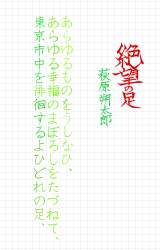 絶望の足
萩原朔太郎
あらゆるものをうしなひ、
あらゆる幸福のまぼろしをたづねて、
東京市中を徘徊するよひどれの足、